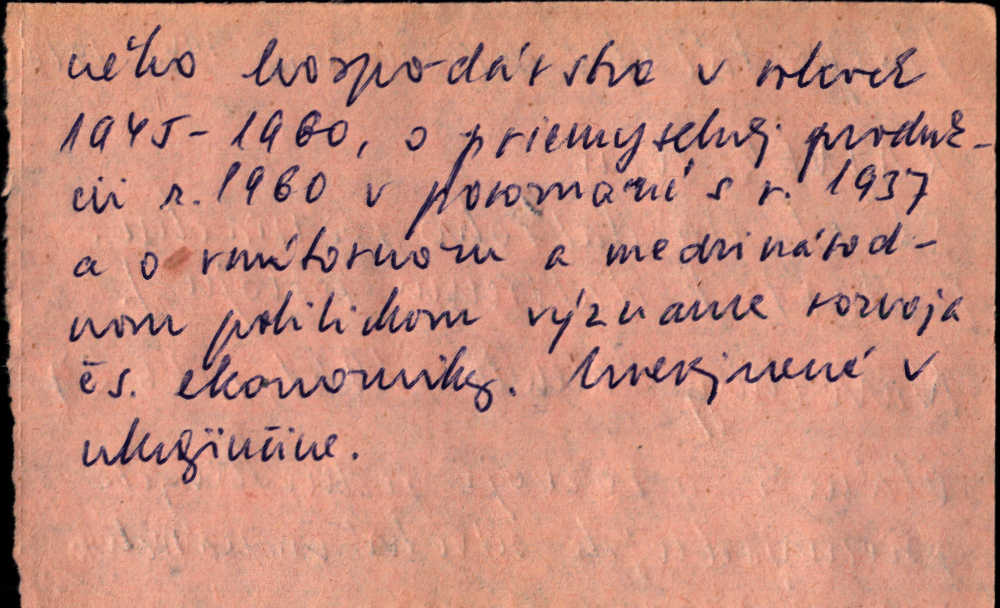 ného hospodárstva v rokoch
1945-1960, o priemyselnej produk-
cii r. 1960 v porovnaní s r. 1937
a o vnútornom a medzinárod-
nom politickom význame rozvoja
čs. ekonomiky. Uverejnené v
ukrajinčine.